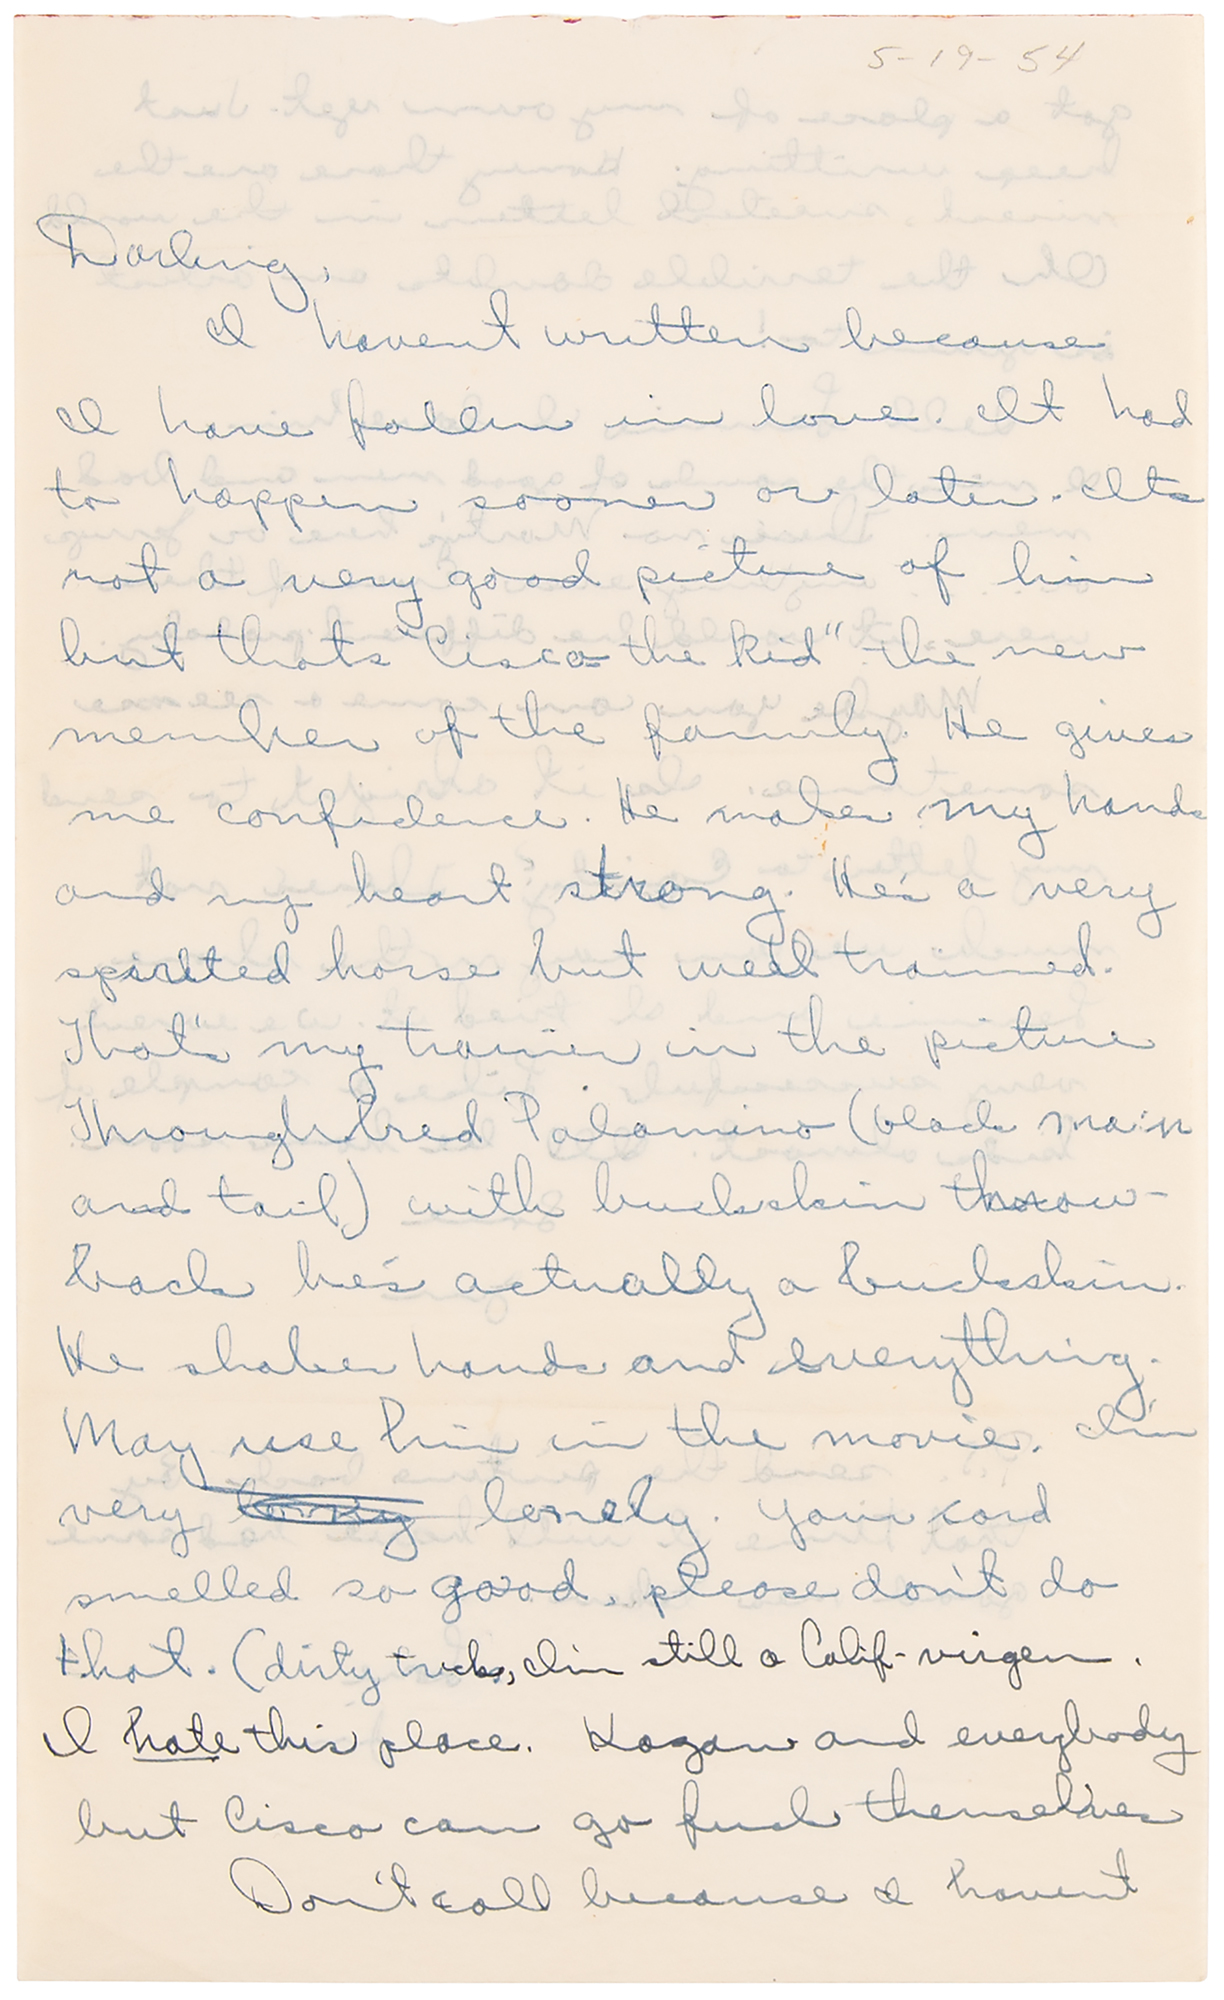 5-19-54
Darling,
I havent written because
I have fallen in love. It had
to happen sooner or later. Its
not a very good picture of him
but thats "Cisco the Kid" the new
member of the family. He gives
me confidence. He makes my hands
and my heart strong. He's a very
spirited horse but well trained.
That's my trainer in the picture
Throughbred Palamino (black main
and tail) with buckskin throw-
back he's actually a buckskin.
He shakes hands and everything.
May use him in the movie. I'm
very lonely. Your card
smelled so good, please don't do
that. (dirty trick, I'm still a Calif-virgen.
I hate this place. Kazan and everybody
but Cisco can go fuck themselves
Don't call because I havent